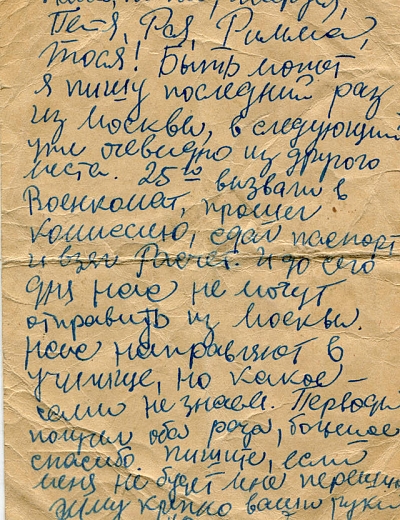 Петя, Рая, Римма,
Тося! Быть может
я пишу последний раз
из Москвы, в следующий
уже очевидно из другого
места. 25го вызвали в
Военкомат, прошел
комиссию, сдал паспорт
и взял Расчет. И до сего
дня нас не могут
отправить из Москвы.
Нас направляют в
училище, но какое –
сами не знаем. Переводы
получил оба раза, большое
спасибо. Пишите, если
меня не будет мне перешлют
Жму крепко ваши руки